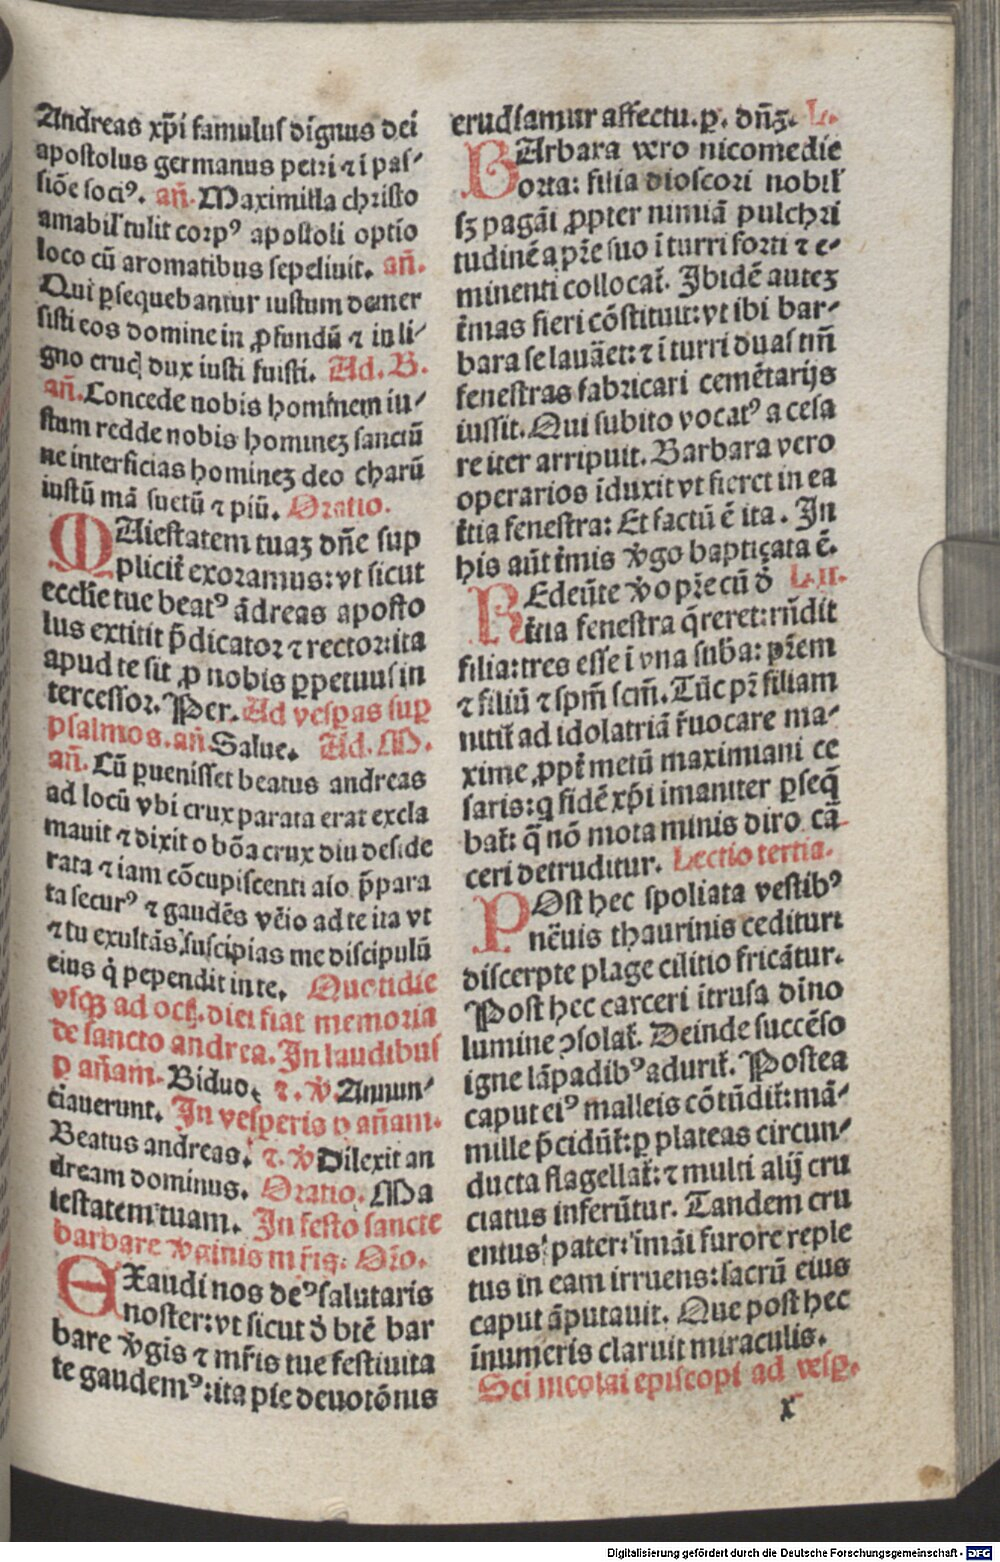 Andreas xp̄i famulus dignus dei
apostolus germanus petri ⁊ ī pas⸗
siōe sociꝰ. an̄. Maximilla christo
amabil' tulit corpꝰ apostoli optīo
loco cū aromatibus sepeliuit. an̄.
Qui ꝑsequebantur iustum demer
sisti eos domine in ꝓfundū ⁊ in li⸗
gno cruc̄ dux iusti fuisti. Ad. B.
an̄. Concede nobis hominem iu⸗
stum redde nobis homineꝫ sanctū
ne interficias homineꝫ deo charū
iustū mā suetū ⁊ piū. Oratio.
MAiestatem tuaꝫ dn̄e sup
plicit̄ exoramus: vt sicut
eccl̄ie tue beatꝰ ādreas aposto
lus extitit p̄dicator ⁊ rector: ita
apud te sit ꝓ nobis ꝑpetuus in
tercessor. Per. Ad vesꝑas suꝑ
psalmos. an̄ Salue. Ad. M.
an̄. Cū ꝑuenisset beatus andreas
ad locū vbi crux parata erat excla
mauit ⁊ dixit o bōa crux diu deside
rata ⁊ iam cōcupiscenti aīo p̄para
ta securꝰ ⁊ gaudēs vēio ad te ita vt
⁊ tu exultās suscipias me discipulū
eius q̇ pependit in te. Quotidie
vsqꝫ ad oct̄. diei fiat memoria
de sancto andrea. In laudibus
ꝑ an̄am. Biduo. ⁊. v̄. Annun⸗
ciauerunt. In vesperis ꝑ an̄am.
Beatus andreas. ⁊. v̄ Dilexit an
dream dominus. Oratio. Ma
iestatem tuam. In festo sancte
barbare v̄ginis mr̄is. Or̄o.
EXaudi nos deꝰ salutaris
noster: vt sicut d̄ btē bar
bare v̄gis ⁊ mr̄is tue festiuita
te gaudemꝰ: ita pie deuotōnis
erudiamur affectu. ꝑ. dn̄ꝫ. L.
BArbara vero nicomedie
orta: filia dioscori nobil'
sꝫ pagāi ꝓpter nimiā pulchri
tudinē a pr̄e suo ī turri forti ⁊ e⸗
minenti collocat̄. Ibidē auteꝫ
t̄mas fieri cōstituit: vt ibi bar⸗
bara se lauāet: ⁊ ī turri duas tm̄
fenestras fabricari cemētarijs
iussit. Qui subito vocatꝰ a cesa
re iter arripuit. Barbara vero
operarios īduxit vt fieret in ea
t̄tia fenestra: Et factū ē ita. In
his aūt t̄mis v̄go baptiçata ē.
REdeūte v̄o pr̄e cū d̄ L. II.
t̄tia fenestra q̄reret: rn̄dit
filia: tres esse ī vna suba: pr̄em
⁊ filiū ⁊ spm̄ scm̄. Tūc pr̄ filiam
nitit̄ ad idolatriā r̄uocare ma⸗
xime ꝓpt̄ metū maximiani ce
saris: q fidē xp̄i imaniter ꝑseq̄
bat̄: q̄ nō mota minis diro cā
ceri detruditur. Lectio tertia.
POst hec spoliata vestibꝰ
nēuis thaurinis ceditur:
discerpte plage cilitio fricātur.
Post hec carceri ītrusa dīno
lumine ꝯsolat̄. Deinde succēso
igne lāpadibꝰ adurit̄. Postea
caput eiꝰ malleis cōtūdit̄: mā⸗
mille p̄cidūt̄: ꝑ plateas circun⸗
ducta flagellat̄: ⁊ multi alij cru
ciatus inferūtur. Tandem cru
entus pater: īmāi furore reple
tus in eam irruens: sacrū eius
caput āputauit. Que post hec
īnumeris claruit miraculis.
Sci nicolai episcopi ad vesꝑ.
x
Digitalisierung gefördert durch die Deutsche Forschungsgemeinschaft - DFG